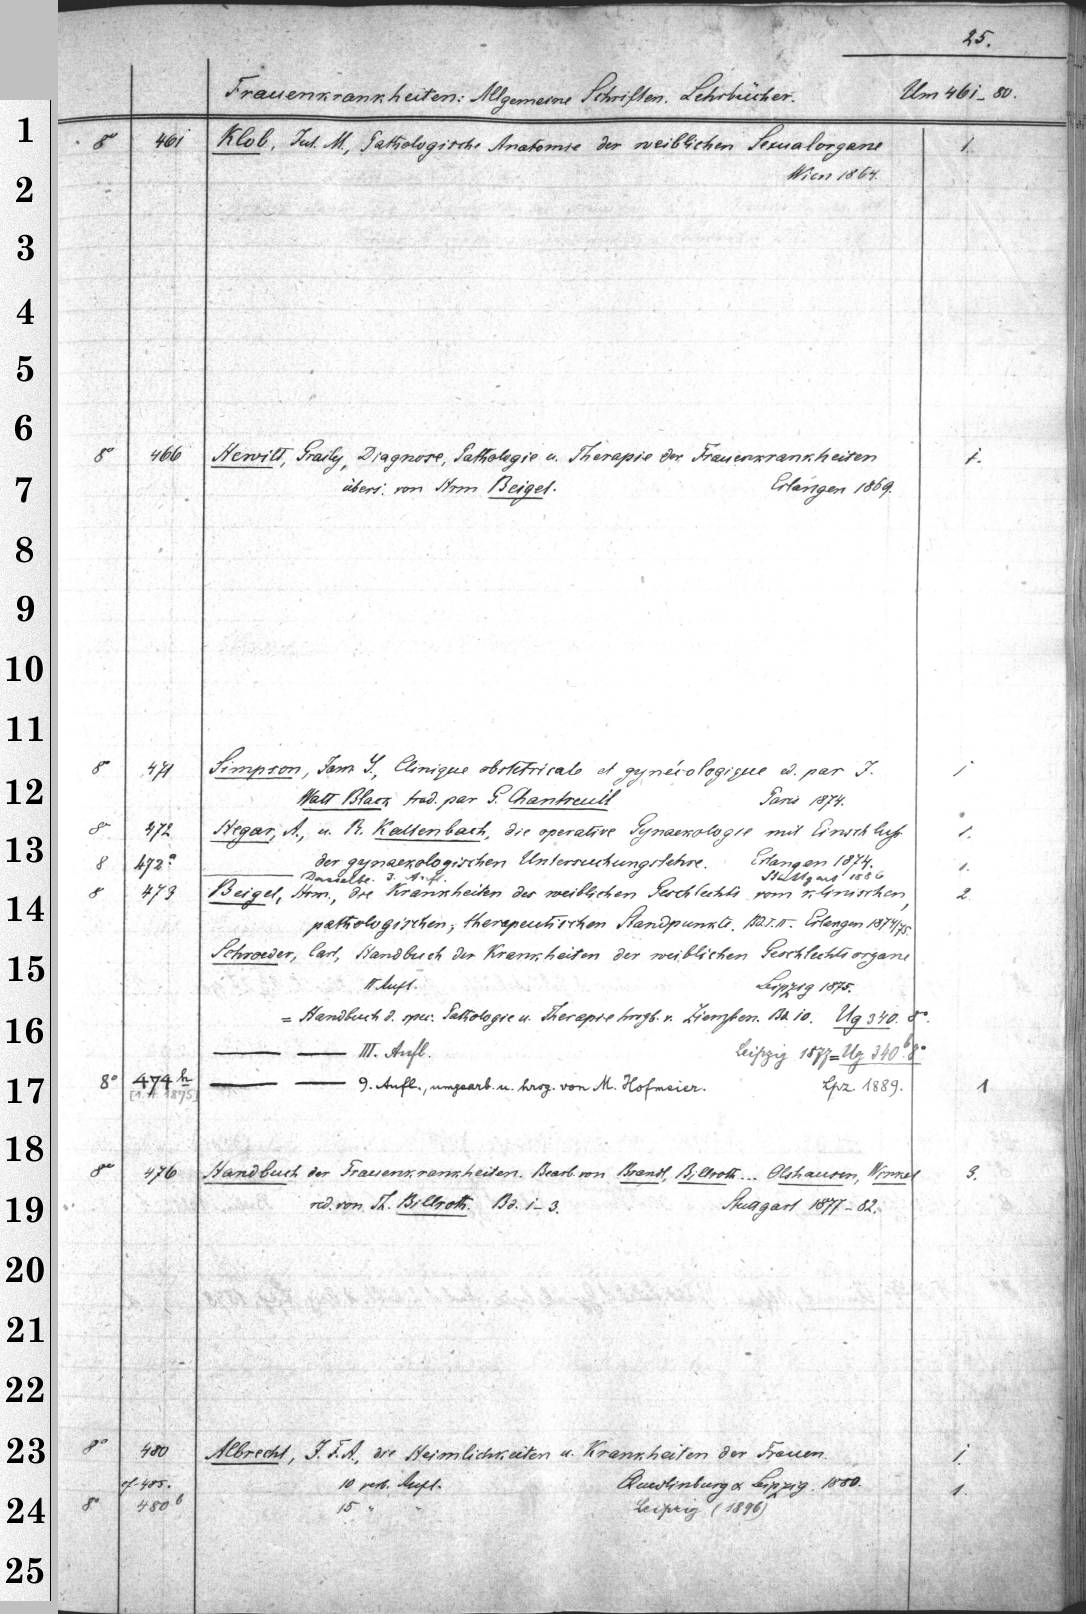 25.
Frauenkrankheiten: Allgemeine Schriften. Lehrbücher. Um 461-80.
1
8° 461 Klob, Jul. M., Pathologische Anatomie der weiblichen Sexualorgane 1.
2
Wien 1864.
3
4
5
6
8° 466 Hewitt, Graily, Diagnose, Pathologie u. Therapie der Frauenkrankheiten 1.
7
übers. von Hrm Beigel. Erlangen 1869.
8
9
10
11
8° 471 Simpson, Jam Y., Clinique obstétricale et gynécologique ed. par J. 1
12
Watt Black trad. par G. Chantreuil Paris 1874.
8° 472 Hegar, A., u. R. Kaltenbach, die operative Gynaekologie mit Einschluss 1.
13
8 472a der gynaekologischen Untersuchungslehre. Erlangen 1874. 1.
Dasselbe. 3. Aufl. Stuttgart 1886
8 473 Beigel, Hrm., die Krankheiten des weiblichen Geschlechts vom klinischen, 2.
14
pathologischen, therapeutischen Standpunkte. Bd. I. II. Erlangen 1874/75.
Schroeder, Carl, Handbuch der Krankheiten der weiblichen Geschlechtsorgane
15
II Aufl. Leipzig 1875.
16
= Handbuch d. spec. Pathologie u. Therapie hrsgb. v. Ziemssen. Bd. 10. Ug 340. 8°.
III. Aufl. Leipzig 1877 = Ug 340b. 8°
17
8° 474 h 9. Aufl., umgearb. u. hrsg. von M. Hofmeier. Lpz. 1889. 1
[1. A. 1875]
18
8° 476 Handbuch der Frauenkrankheiten. Bearb von Brandl, Billroth... Olshausen, Winkel 3.
19
red. von Th. Billroth. Bd. 1-3. Stuttgart 1877-82.
20
21
22
23
8° 480 Albrecht, J. F. A., die Heimlichkeiten u. Krankheiten der Frauen. 1.
cf 485. 10 verb. Aufl. Quedlinburg & Leipzig. 1880.
24
8° 480b 15 " " Leipzig (1896) 1.
25